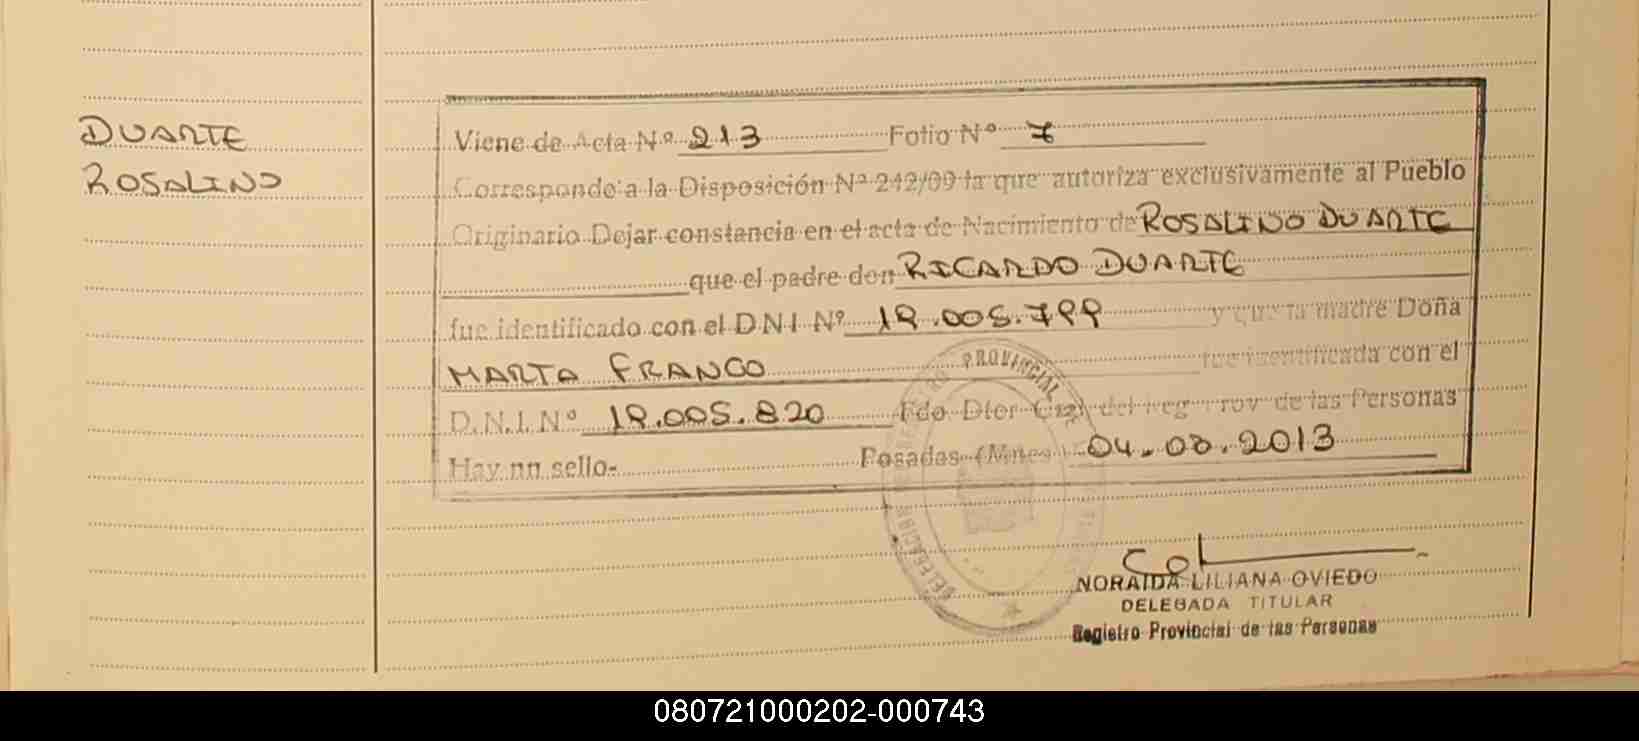 DUARTE
ROSALINO
Viene de Acta Nº 213 Folio Nº 7
Corresponde a la Disposición Nº 242/09 la que autoriza exclusivamente al Pueblo
Originario Dejar constancia en el acta de Nacimiento de ROSALINO DUARTE
que el padre don RICARDO DUARTE
fue identificado con el D N I Nº 19.005.799 y que la madre Doña
MARTA FRANCO fue identificada con el
D.N.I. Nº 19.005.820 Fdo Dtor Gral del Reg Prov de las Personas
Hay un sello- Posadas (Mnes) 04.08.2013
PROVINCIAL
NORAIDA LILIANA OVIEDO
DELEGADA TITULAR
Registro Provincial de las Personas
080721000202-000743